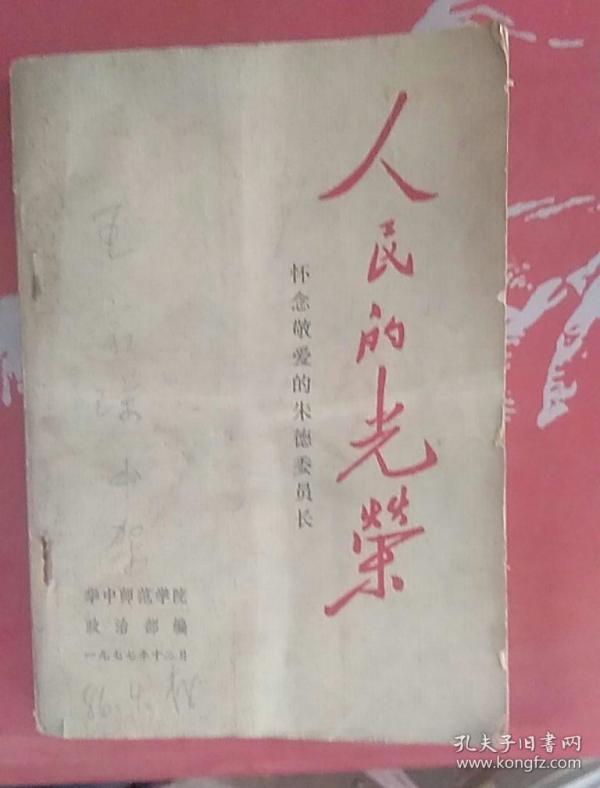 人民的光榮
怀念敬爱的朱德委员长
华中师范学院
政治部编
一九七七年十二月
孔夫子旧書网
www.kongfz.com